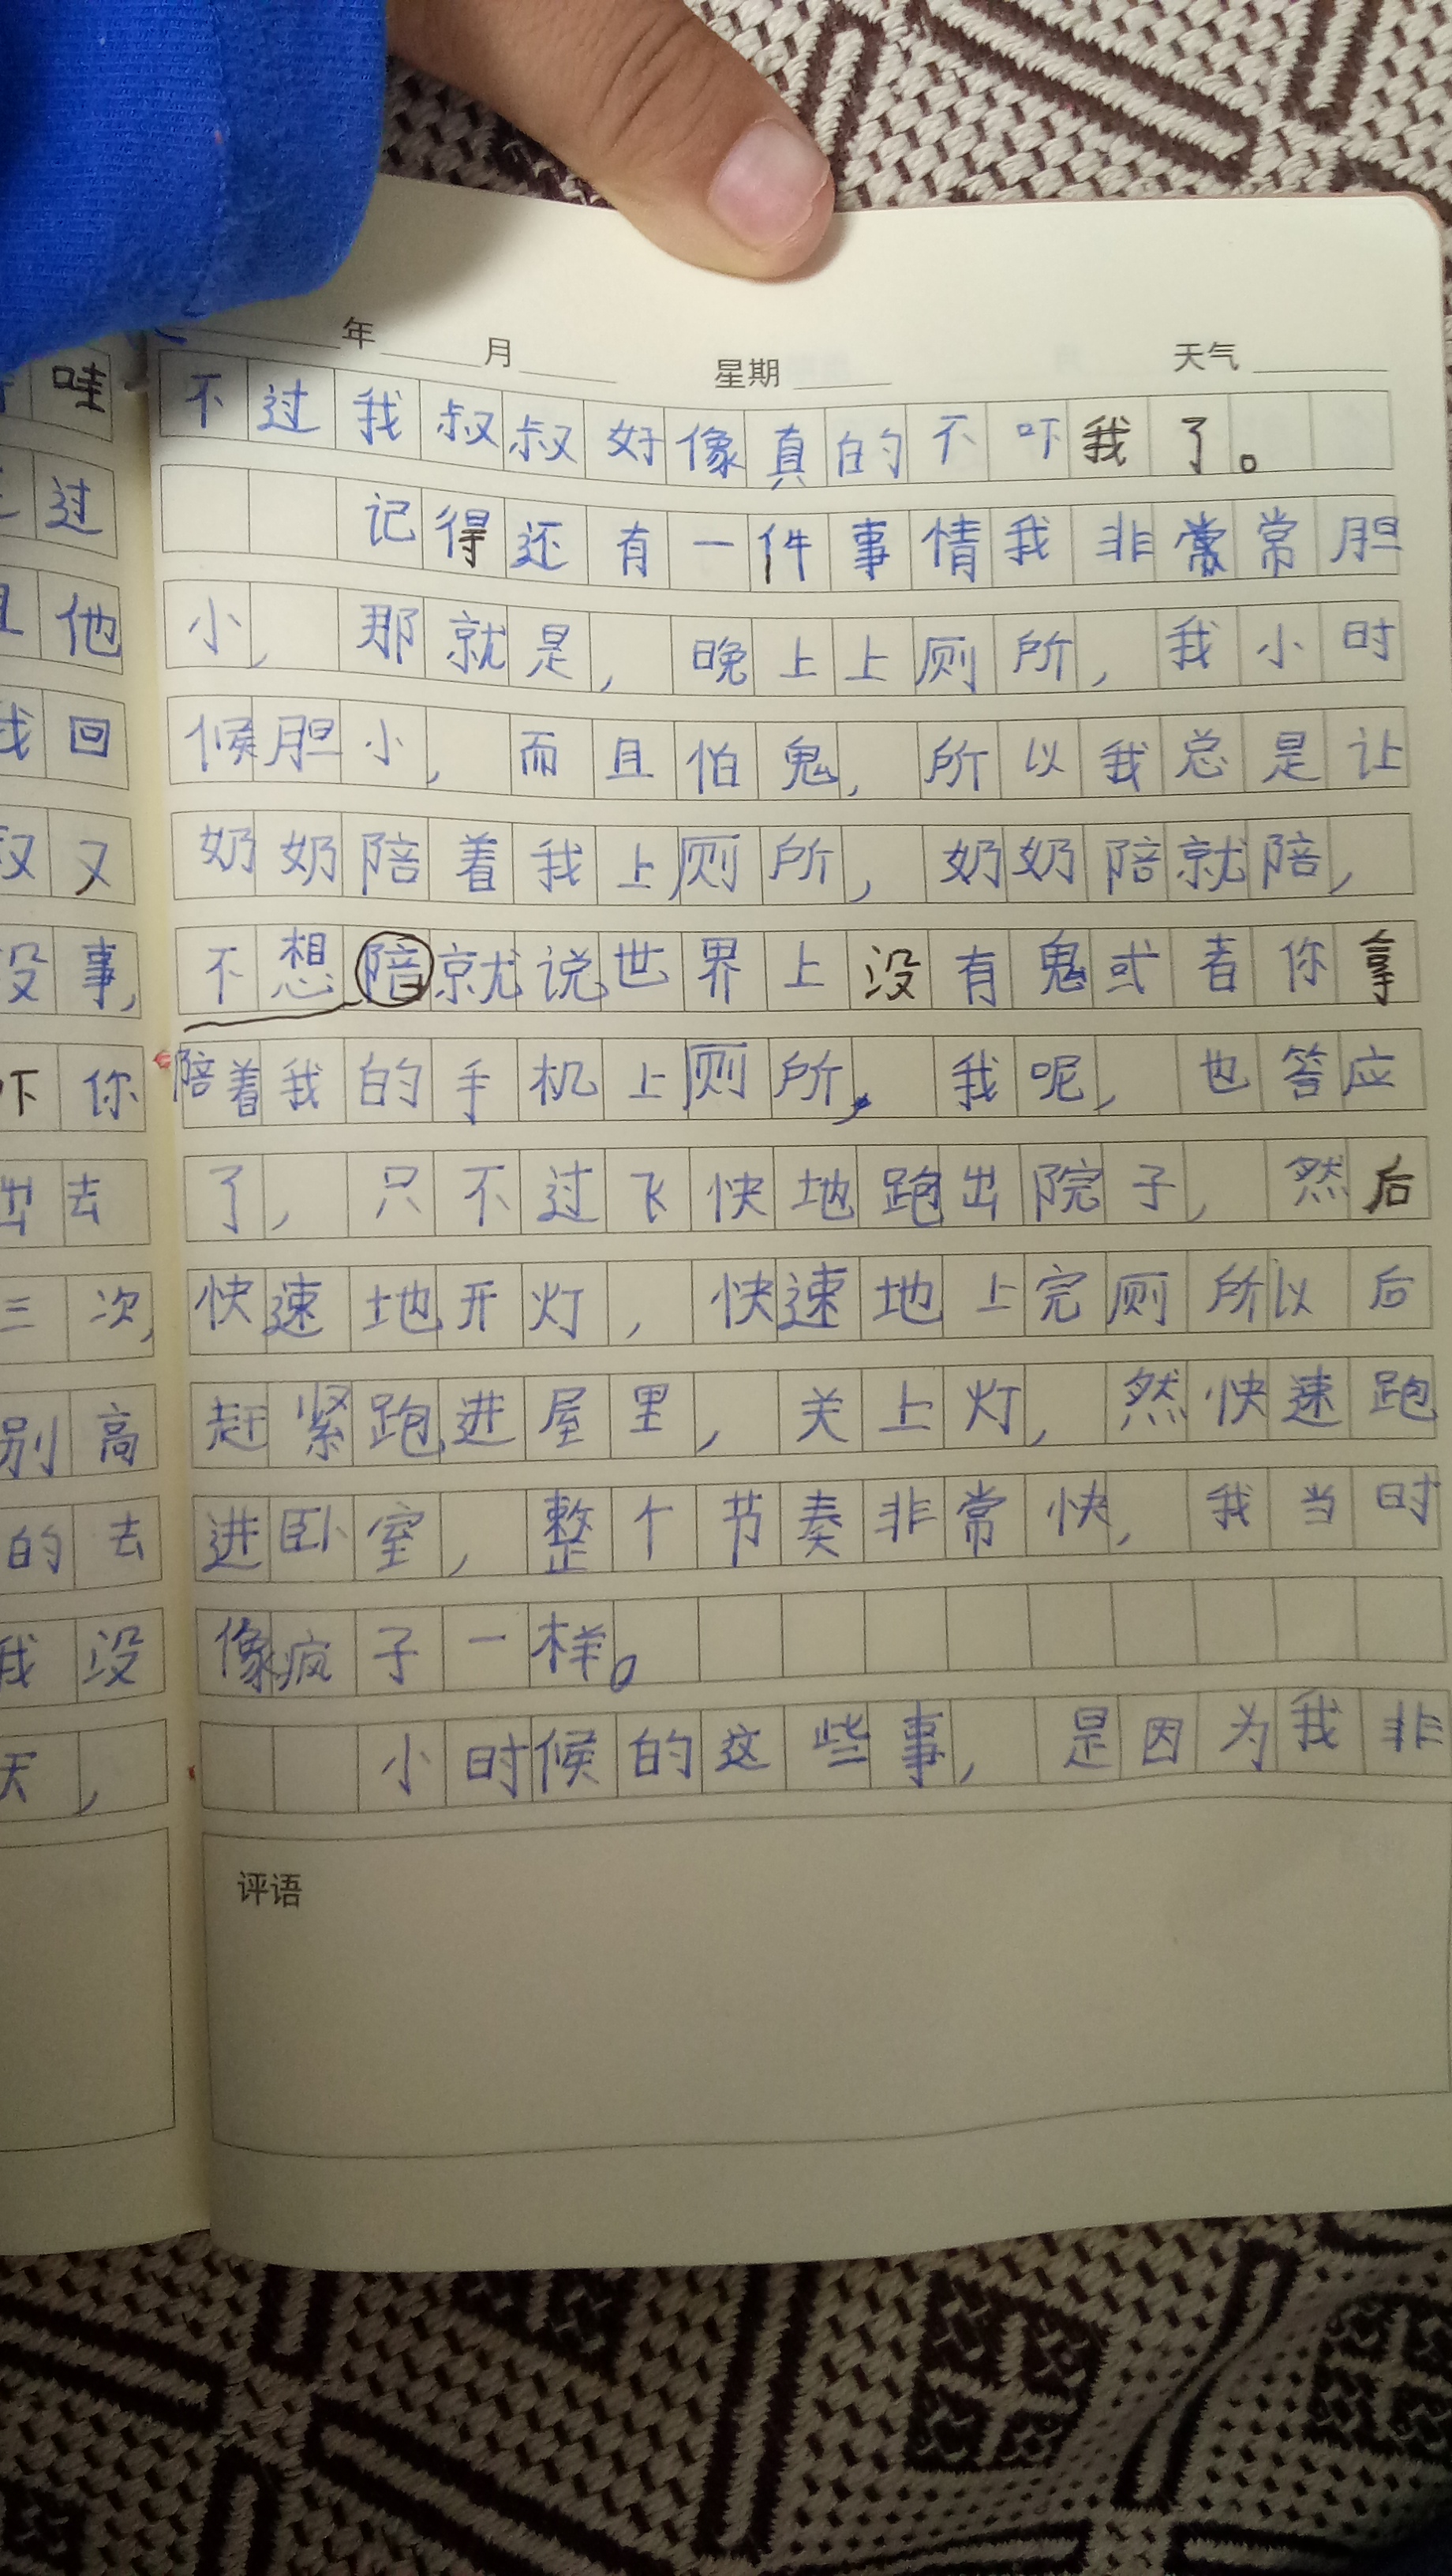 年 月 星期 天气
不过我叔叔好像真的不吓我了。
记得还有一件事情我非常常胆
小，那就是，晚上上厕所，我小时
候胆小，而且怕鬼，所以我总是让
奶奶陪着我上厕所，奶奶陪就陪，
不想陪就说世界上没有鬼或者你拿
陪着我的手机上厕所，我呢，也答应
了，只不过飞快地跑出院子，然后
快速地开灯，快速地上完厕所以后
赶紧跑进屋里，关上灯，然快速跑
进卧室，整个节奏非常快，我当时
像疯子一样。
小时候的这些事，是因为我非
评语
哇
过
他
回
又
没事，
吓你
出去
三次，
别高
的去
我没
天，